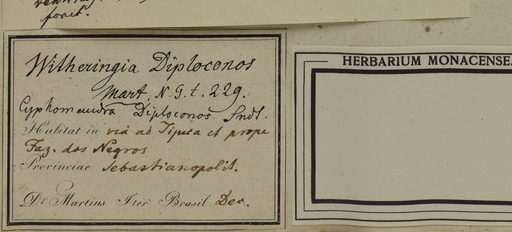 foret.
Witheringia Diploconos
Mart. N. G. t. 229.
Cyphomandra Diploconos Sndt.
Habitat in via ad Tijuca et prope
Faz. dos Negros
Provinciae Sebastianopolit.
Dr. Martius Iter Brasil. Dec.
HERBARIUM MONACENSE